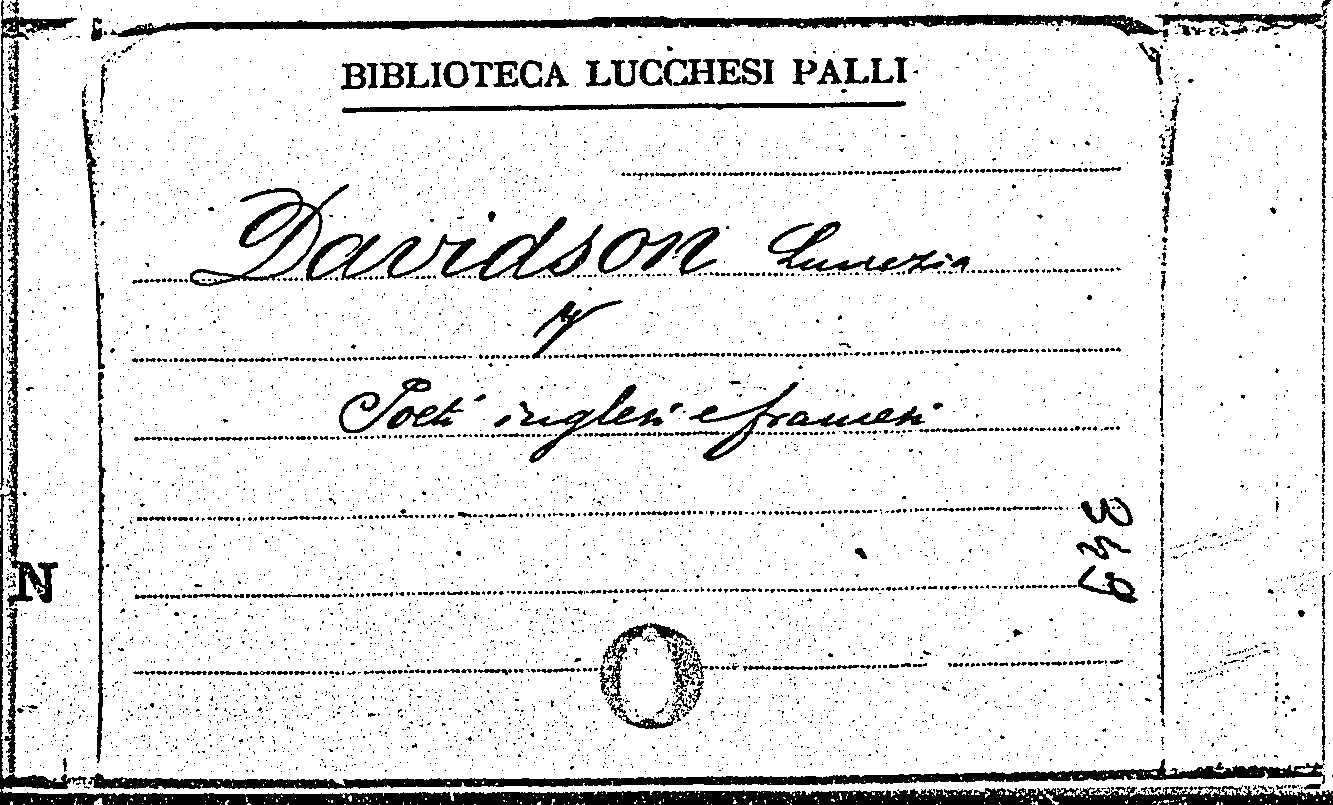 BIBLIOTECA LUCCHESI PALLI
Davidson Lucrezia
V
Poeti inglesi e francesi
349
N